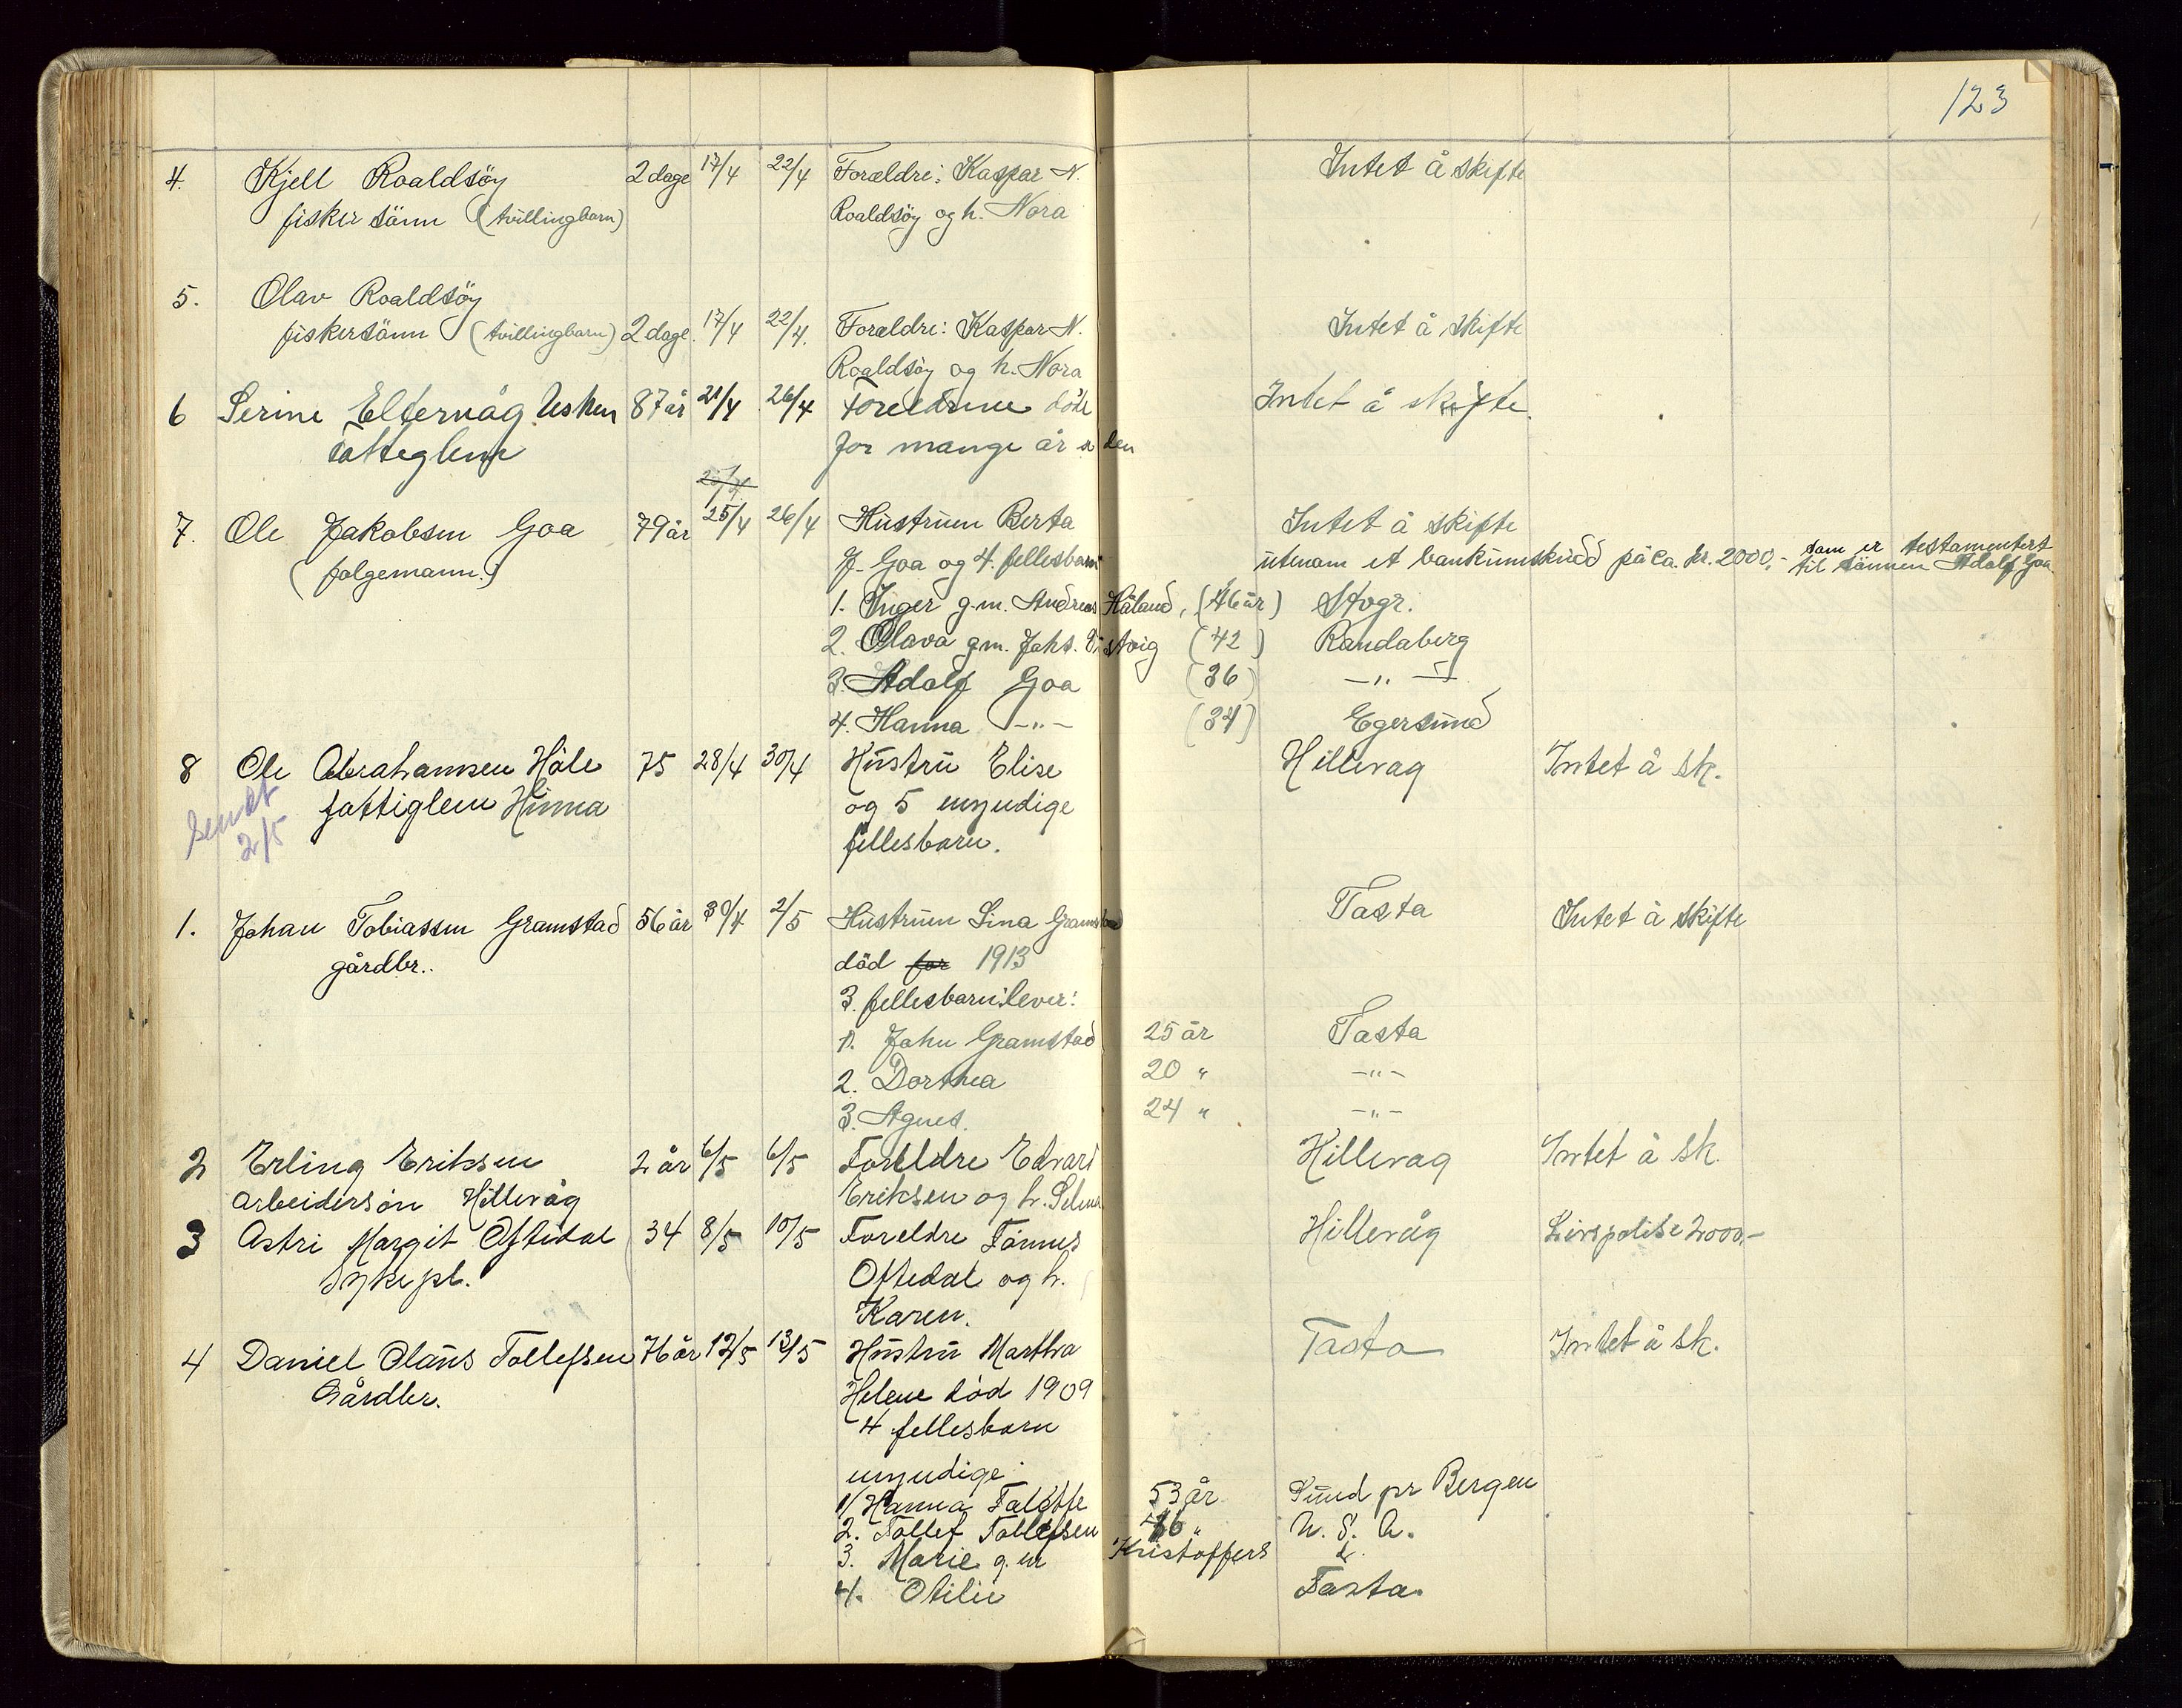 123
4. Kjell Roaldsöy 2 dage 17/4 22/4 Forældre: Kaspar N. Intet å skifte
fisker sönn (tvillingbarn) Roaldsöy og h. Nora
5. Olav Roaldsöy
fiskersönn (tvillingbarn) 2 dage. 17/4 22/4. Forældre: Kaspar N. Intet å skifte
Roaldsöy og h. Nora
6 Serine Eltervåg Usken 87 år 21/4 26/4 Foreldrene döde Intet å skifte.
fatteglem for mange år siden
25/4
7. Ole Jakobsen Goa 79 år 25/4 26/4 Hustruen Berta Intet å skifte
(folgemann.) J. Goa og 4. fellesbarn utenom et bankinnskudd på ca. kr. 2000,- som er testamentert
til sönnen Adolf Goa.
1. Inger g.m. Andreas Håland, (46 år) Stvgr.
2. Olava g.m. Johs. Vistvig (42) Randaberg
3. Adolf Goa (36) —"—
4. Hanna —"— (34) Egersund
8 Ole Abrahamsen Høle 75 28/4 30/4 Hustru Elise Hillevag Intet å sk.
sendt fattiglem Hinna og 5 myndige
2/5 fellesbarn.
1. Johan Tobiassen Gramstad 56 år 30/4 2/5 Hustruen Sina Gramstad Tasta Intet å skifte
gårdbr.. död for 1913
3. fellesbarn lever:
1. John Gramstad 25 år Tasta
2. Dorthea 20 " —"—
3. Agnes. 24 " —"—
2 Erling Eriksen 2 år 6/5 6/5 Foreldre Edvard Hillevag Intet å sk.
arbeidersön Hillevåg Eriksen og h. Selma
3 Astri Margit Oftedal 34 8/5 10/5 Foreldre Tönnes Hillevåg Livspolise 2000,-
Sykepl. Oftedal og h.
Karen.
4 Daniel Olaus Tollefsen 76 år 12/5 13/5 Hustru Martha Tasta Intet å sk.
Gårdbr. Helene död 1909
4 fellesbarn
myndige
1/ Hanna 53 år Sund pr Bergen
2. Tollef Tollefsen " U. S. A.
3. Marie g. m Kristoffers d.
4. Otilie Tasta.